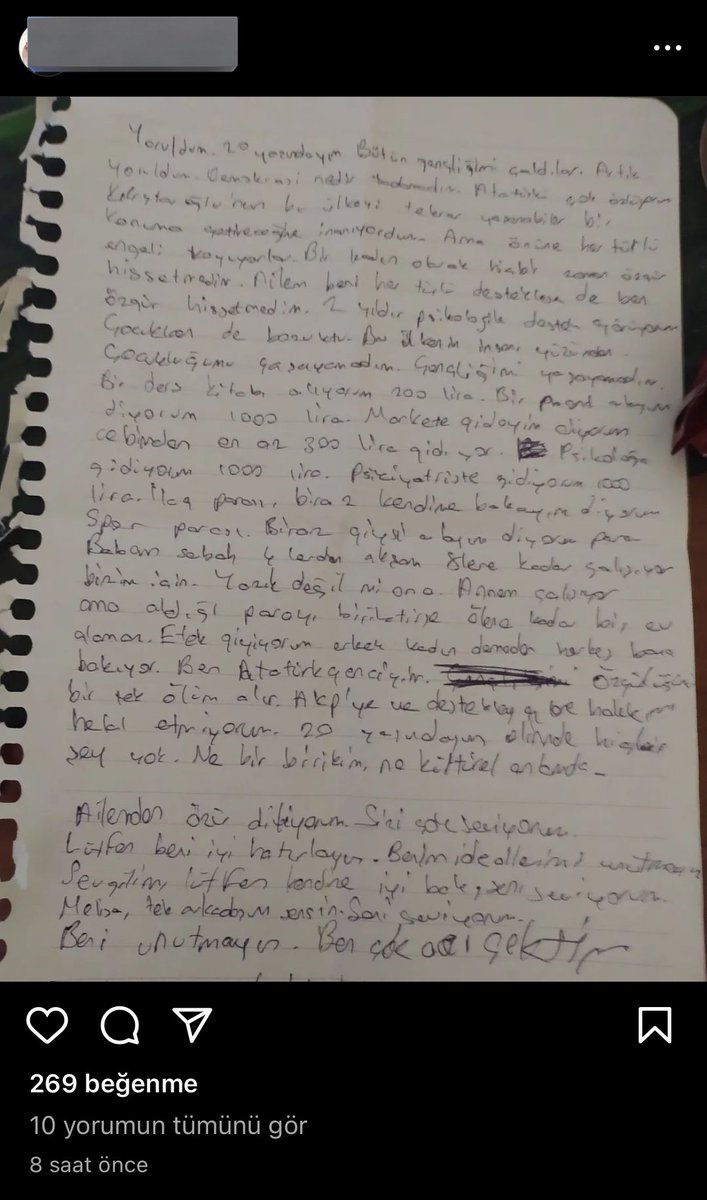 Yoruldum. 20 yaşındayım Bütün gençliğimi çaldılar. Artık
yoruldum. Demokrasi nedir tadamadım. Atatürk'ü çok özlüyorum
Kılıçdaroğlu'nun bu ülkeyi tekrar yaşanabilir bir
konuma getireceğine inanıyordum. Ama önüne her türlü
engeli koyuyorlar. Bir kadın olarak hiçbir zaman özgür
hissetmedim. Ailem beni her türlü desteklese de ben
özgür hissetmedim. 2 yıldır psikolojik destek görüyorum
Çocukken de bozuktu. Bu ülkenin insanı yüzünden
Çocukluğumu yaşayamadım. Gençliğimi yaşayamadım.
Bir ders kitabı alıyorum 200 lira. Bir alayım
diyorum 1000 lira. Markete gideyim diyorum
cebimden en az 300 lira gidiyor. Psikoloğa
gidiyorum 1000 lira. Psikiyatriste gidiyorum 1000
lira. İlaç parası, biraz kendime bakayım diyorum
Spor parası. Biraz giysi alayım diyorum para
Babam sabah 4 lerden akşam 8lere kadar çalışıyor
bizim için. Yazık değil mi ona. Annem çalışıyor
ama aldığı parayı biriktirse ölene kadar bir ev
alamaz. Etek giyiyorum erkek kadın demeden herkes bana
bakıyor. Ben Atatürk genciyim. Özgürlüğümü
bir tek ölüm alır. Akp'ye ve destekleyen halka
helal etmiyorum. 20 yaşındayım elimde hiçbir
şey yok. Ne bir birikim, ne kültürel anlamda
Ailemden özür diliyorum. Sizi çok seviyorum.
Lütfen beni iyi hatırlayın. Benim ideallerimi unutmayın
Sevgilim, lütfen kendine iyi bak, seni seviyorum.
Melisa, tek arkadaşım sensin. Seni seviyorum.
Beni unutmayın. Ben çok acı çektim
269 beğenme
10 yorumun tümünü gör
8 saat önce